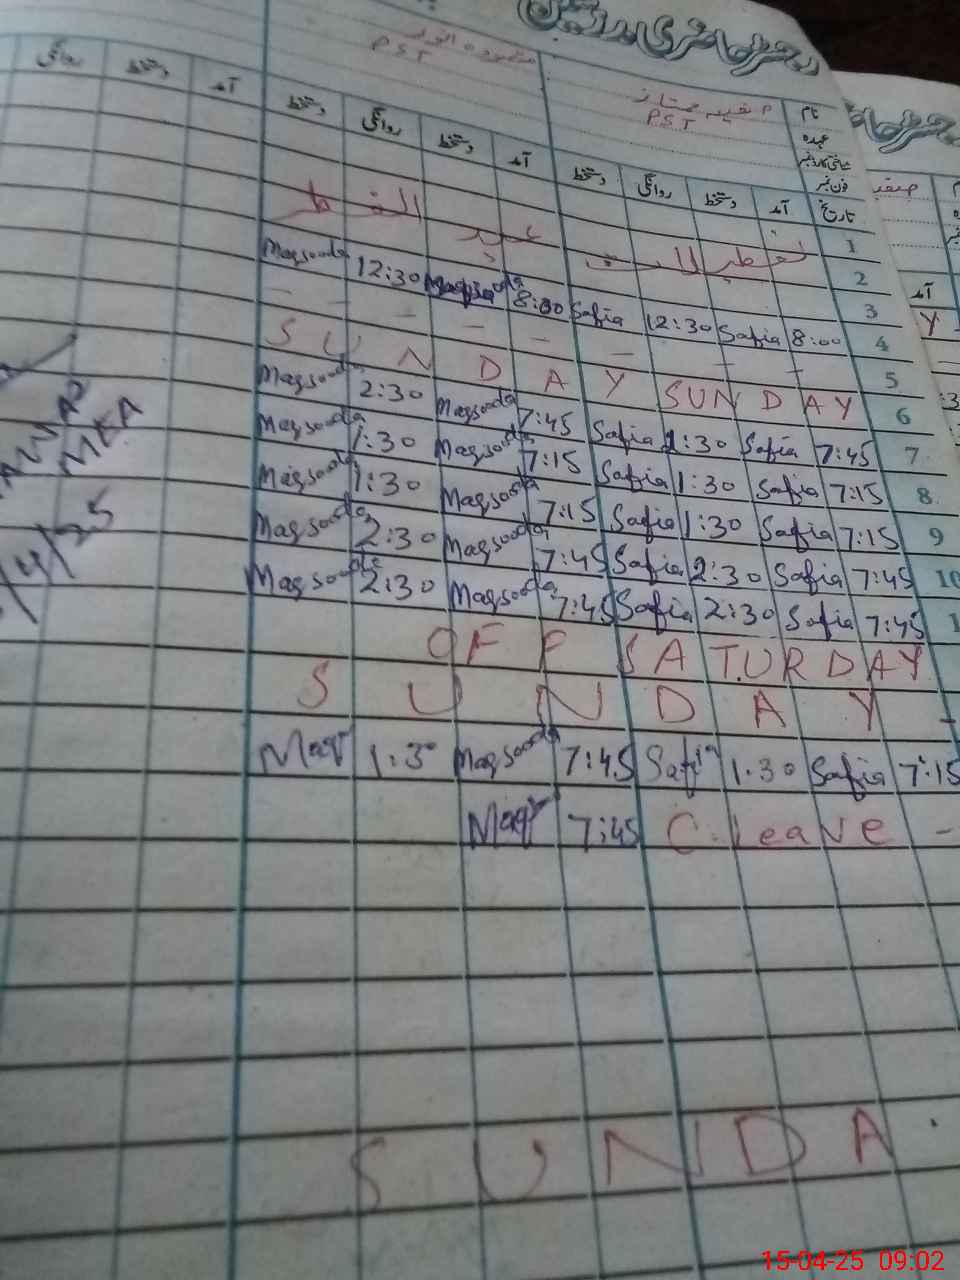 دختر حاضری مدرسین
نام
صفیہ ممتاز
مقصودہ انور
عہدہ
PST
PST
شناختی کارڈ نمبر
فون نمبر
تاریخ آمد دستخط روانگی دستخط آمد دستخط روانگی دستخط آمد دستخط روانگی
1
2 عید الفطر
3
Maqsooda 12:30 Maqsooda 8:00 Safia 12:30 Safia 8:00 4
- - - - - - - 5
SUNDAY SUNDAY 6
Maqsooda 2:30 Maqsooda 7:45 Safia 2:30 Safia 7:45 7
Maqsooda 1:30 Maqsooda 7:15 Safia 1:30 Safia 7:15 8
Maqsooda 1:30 Maqsooda 7:15 Safia 1:30 Safia 7:15 9
Maqsooda 2:30 Maqsooda 7:45 Safia 2:30 Safia 7:45 10
Maqsooda 2:30 Maqsooda 7:45 Safia 2:30 Safia 7:45 1
OFF SATURDAY
SUNDAY -
Maqs 1:30 Maqsooda 7:45 Safia 1:30 Safia 7:15
Maqs 7:45 C.leave -
SUNDA
MEA
15-04-25 09:02